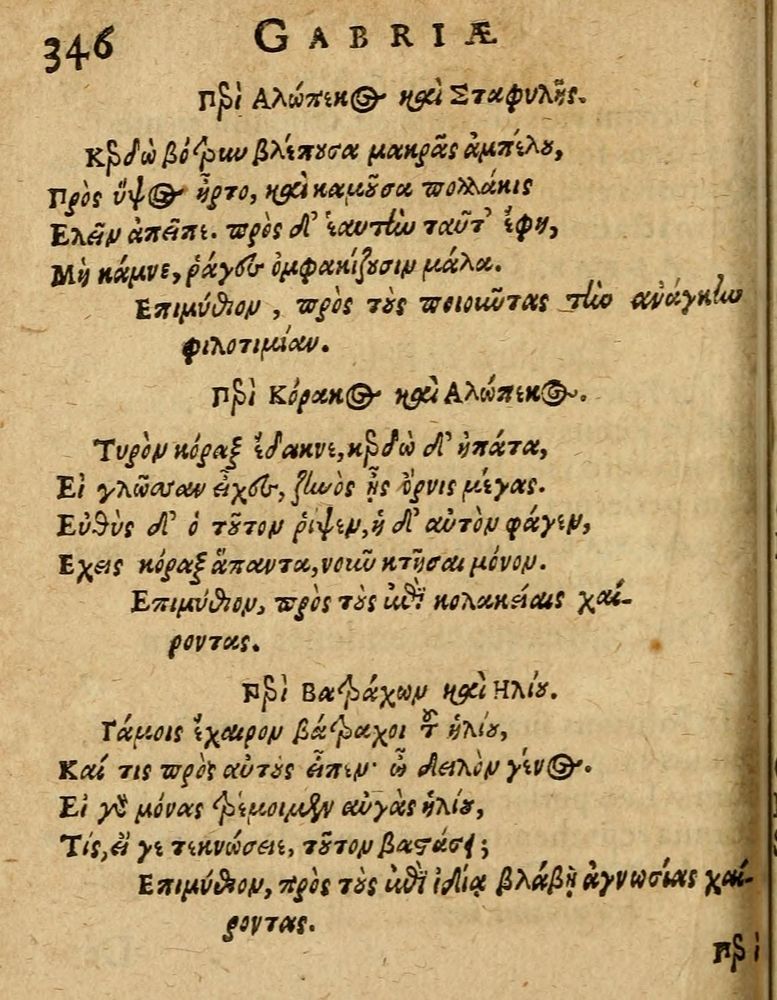 346 GABRIÆ
Περὶ Αλώπεκος καὶ Σταφυλῆς.
Κερδὼ βότρυν βλέπουσα μακρᾶς ἀμπέλου,
Πρὸς ὕψος ἦρτο, καὶ καμοῦσα πολλάκις
Ελεῖν ἀπεῖπε. πρὸς δ' ἑαυτὴν ταῦτ' ἔφη,
Μὴ κάμνε, ῥάγες ὀμφακίζουσιν μάλα.
Επιμύθιον, πρὸς τοὺς ποιοῦντας τὴν ἀνάγκην
φιλοτιμίαν.
Περὶ Κόρακος καὶ Αλώπεκος.
Τυρὸν κόραξ ἔδακνε, κερδὼ δ' ἠπάτα,
Εἰ γλῶσσαν εἶχες, ζηνὸς ἦς ὄρνις μέγας.
Εὐθὺς δ' ὁ τοῦτον ῥίψεν, ἡ δ' αὐτὸν φάγεν,
Εχεις κόραξ ἅπαντα, νοῦν κτῆσαι μόνον.
Επιμύθιον, πρὸς τοὺς ἐπὶ κολακείαις χαί-
ροντας.
Περὶ Βατράχων καὶ Ηλίου.
Γάμοις ἔχαιρον βάτραχοι τοῦ ἡλίου,
Καί τις πρὸς αὐτοὺς εἶπεν· ὦ δειλὸν γένος.
Εἰ γὰρ μόνας τρέμοιμεν αὐγὰς ἡλίου,
Τίς, εἴ γε τεκνώσειε, τοῦτον βαστάσει;
Επιμύθιον, πρὸς τοὺς ἐπὶ ἰδίᾳ βλάβῃ ἀγνωσίας χαί-
ροντας.
Περὶ